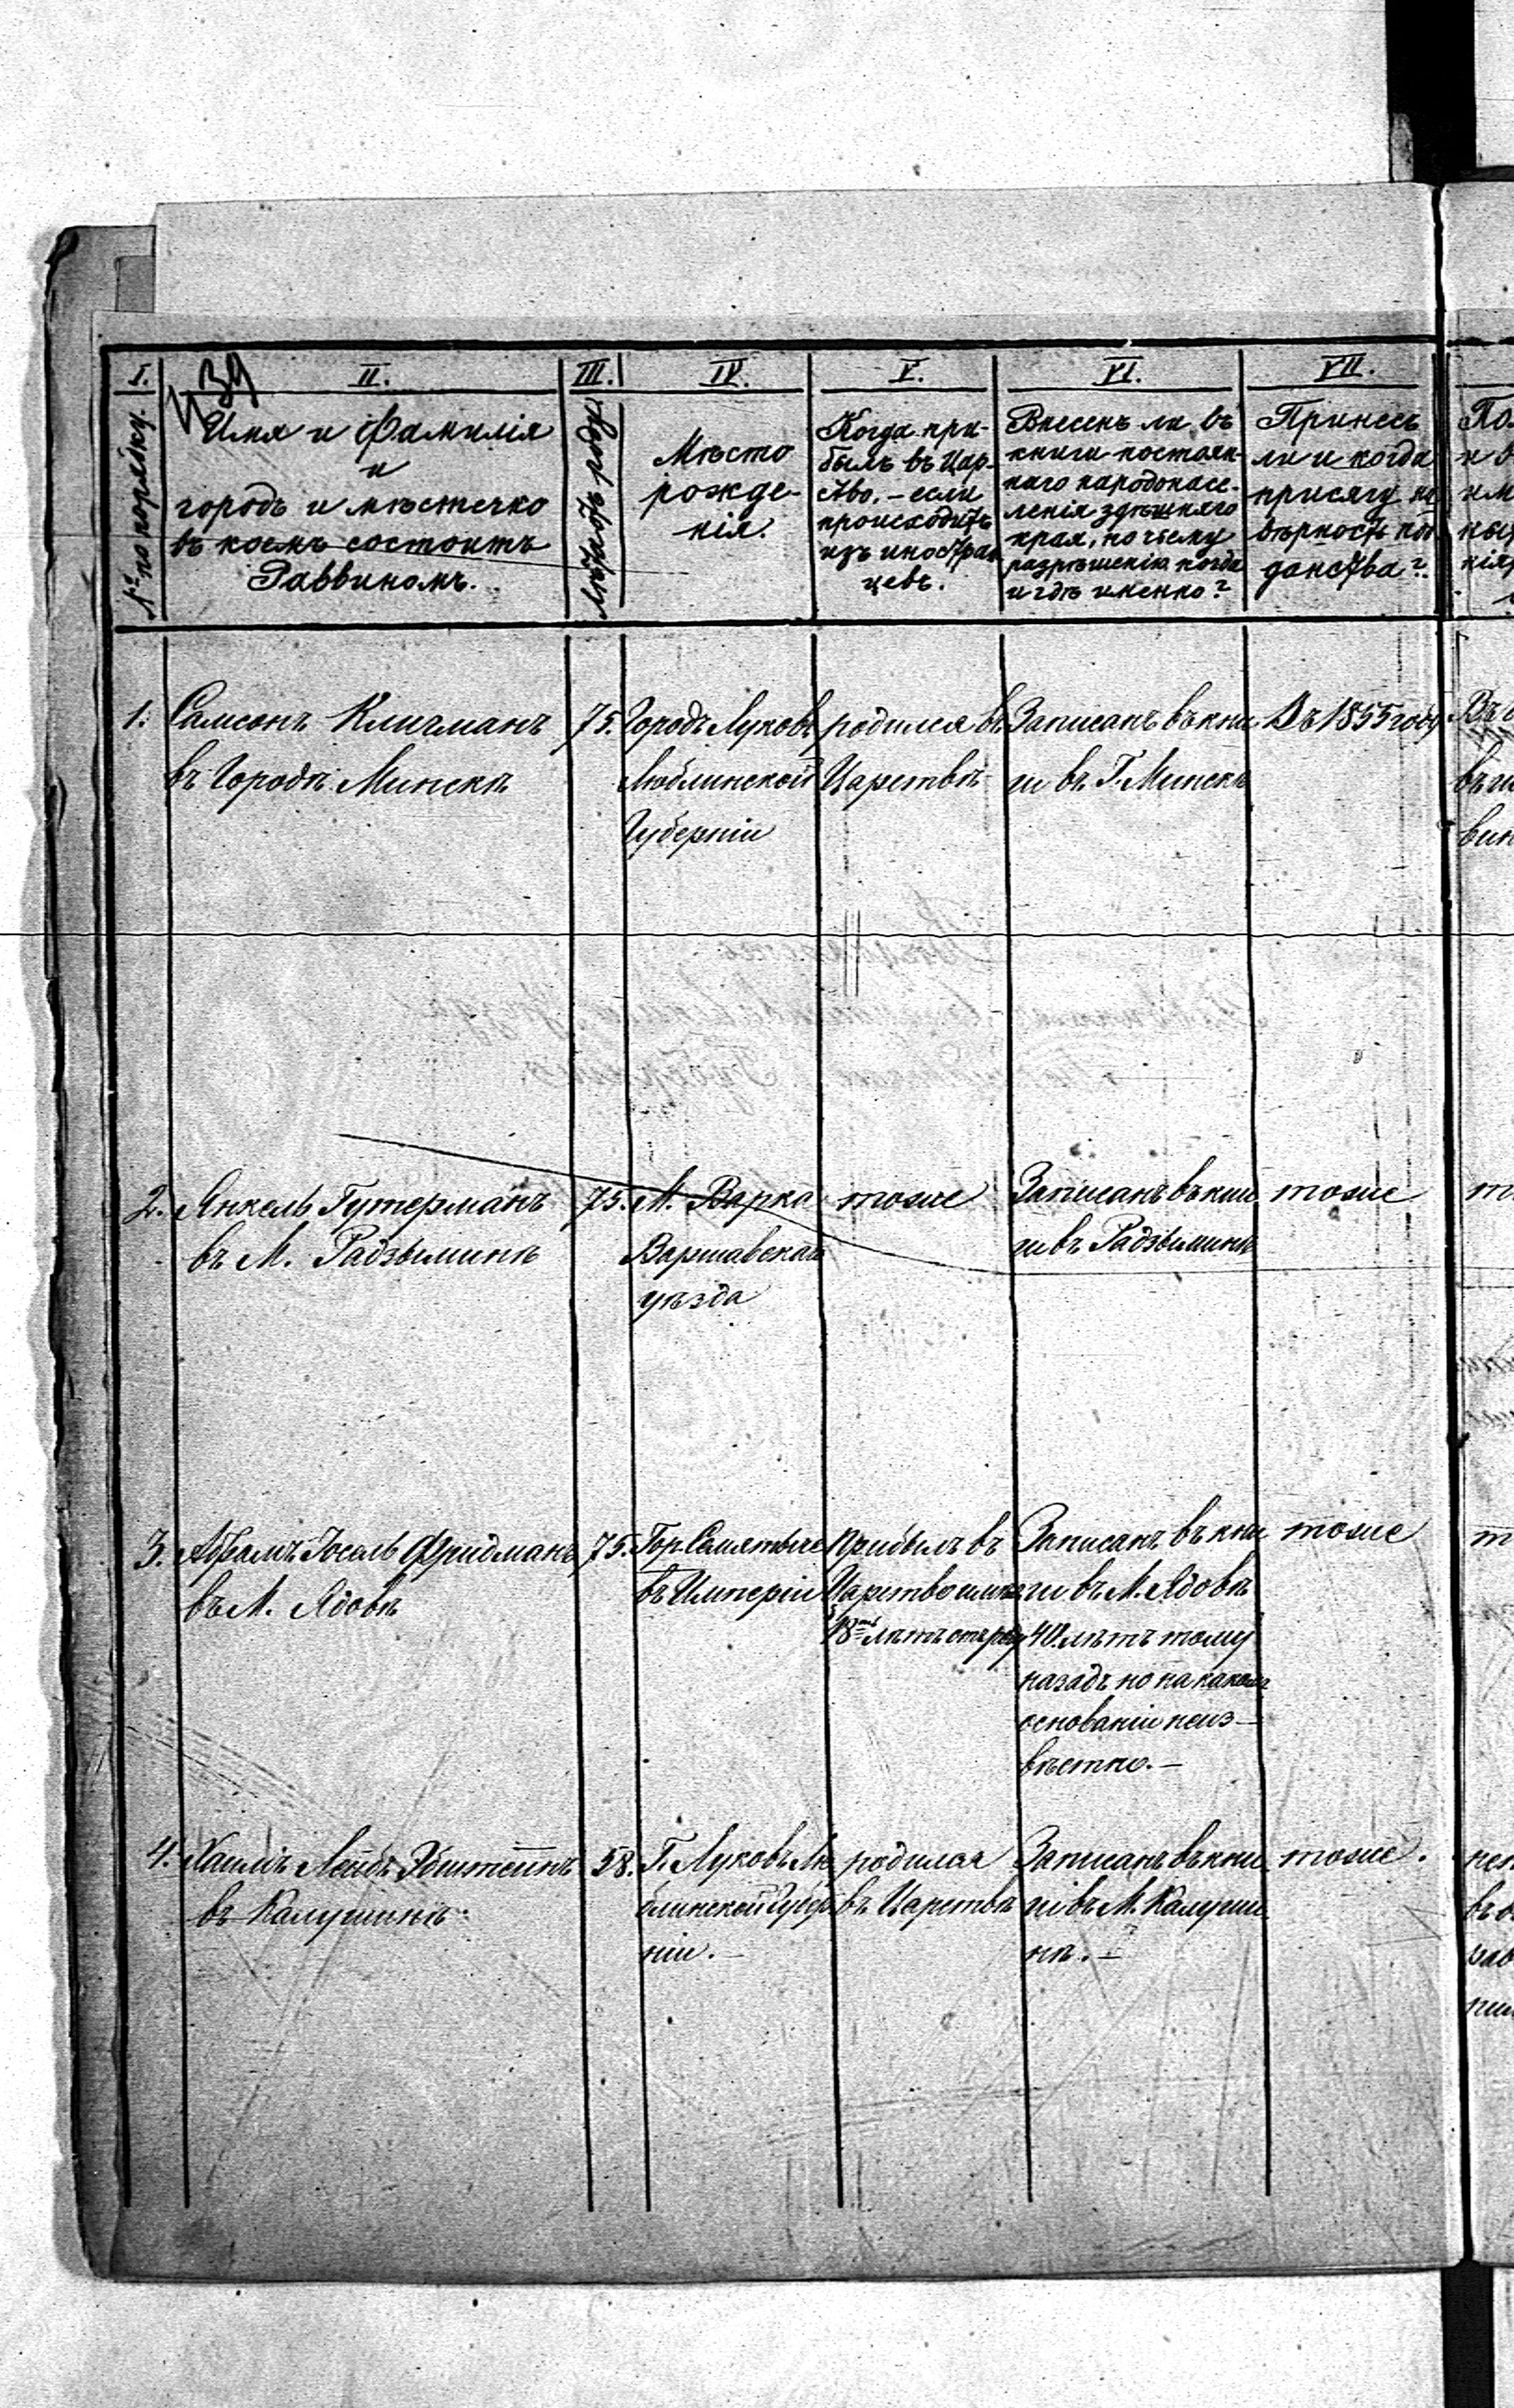 I.
II.
III.
IV.
V.
VI.
VII.
39
№ по порядку.
Имя и Фамилія
и
городъ и мѣстечко
въ коемъ состоитъ
Раввиномъ.
Мѣсто
рожде-
нія.
Когда при-
былъ въ Цар-
ство, – если
происходитъ
изъ иностран
цевъ.
Внесенъ ли въ
книги постоян-
наго народонасе-
ленія здѣшняго
края, по чьему
разрѣшенію когда
и гдѣ именно?
Принесъ
ли и когда
присягу на
вѣрность под
данства?
1. Самсонъ Клигманъ
въ Городѣ Минскѣ
75.
Городъ Луковъ
Люблинской
Губерніи
родился въ
Царствѣ
Записанъ въ кни
ги въ Г. Минскѣ
Въ 1855 году
2. Янкель Гутерманъ
въ М. Радзыминѣ
75.
М. Варка
Варшавскаго
уѣзда
тоже
Записанъ въ кни
ги въ Радзыминѣ
тоже
3. Абрамъ Іосель Фридманъ
въ М. Ядовѣ
75.
Гор. Семятыче
въ Имперіи
Прибылъ въ
Царство
18 лѣтъ отъ роду
Записанъ въ кни
ги въ М. Ядовѣ
40. лѣтъ тому
назадъ но на какомъ
основаніи неиз–
вѣстно. –
тоже
4. Лейбъ Эпштейнъ
въ Калушинѣ
58.
Г. Луковъ Лю
блинской Губер
ніи. –
родился
въ Царствѣ
Записанъ въ кни
ги въ М. Калуши
нѣ. –
тоже.